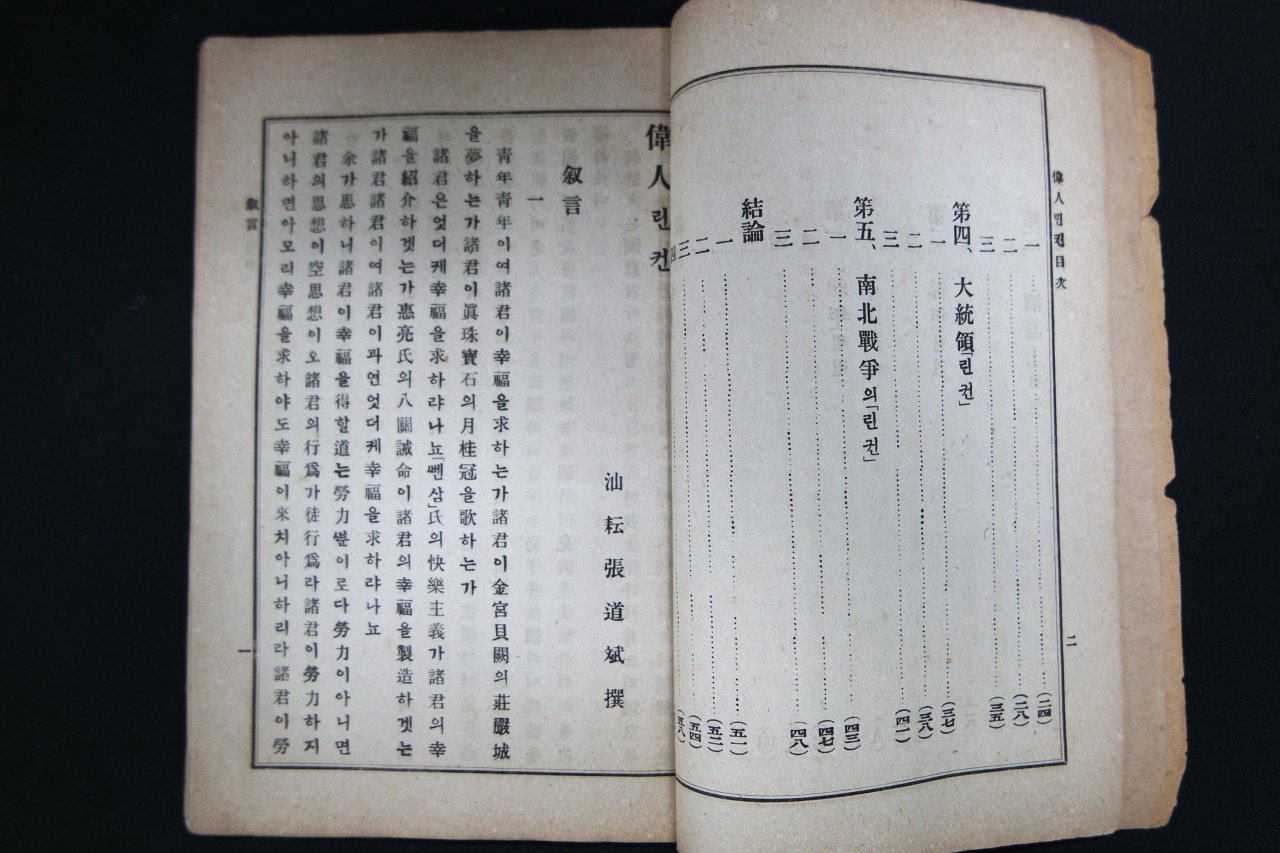 偉人린컨目次
一……(二四)
二……(二八)
三……(三五)
第四、大統領「린컨」
一……(三七)
二……(三八)
三……(四一)
第五、南北戰爭의「린컨」
一……(四三)
二……(四七)
三……(四八)
結論
一……(五一)
二……(五二)
三……(五四)
四……(五八)
二
偉人린컨
汕耘張道斌撰
叙言
一
靑年靑年이여諸君이幸福을求하는가諸君이金宮貝闕의莊嚴城
을夢하는가諸君이眞珠寶石의月桂冠을歌하는가
諸君은엇더케幸福을求하랴나뇨「뻰삼」氏의快樂主義가諸君의幸
福을紹介하겟는가惠亮氏의八關誡命이諸君의幸福을製造하겟는
가諸君諸君이여諸君이과연엇더케幸福을求하랴나뇨
余가思하니諸君이幸福을得할道는勞力뿐이로다勞力이아니면
諸君의思想이空思想이오諸君의行爲가徒行爲라諸君이勞力하지
아니하면아모리幸福을求하야도幸福이來치아니하리라諸君이勞
叙言
一